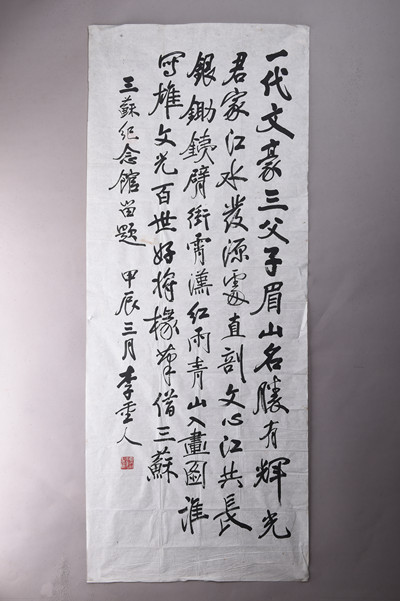 一代文豪三父子眉山名勝有輝光
君家江水發源處直剖文心江共長
銀鋤鐵臂銜霄漢紅雨青山入畫圖誰
寫雄文光百世好將椽筆借三蘇
三蘇紀念館留題 甲辰三月 李雲人